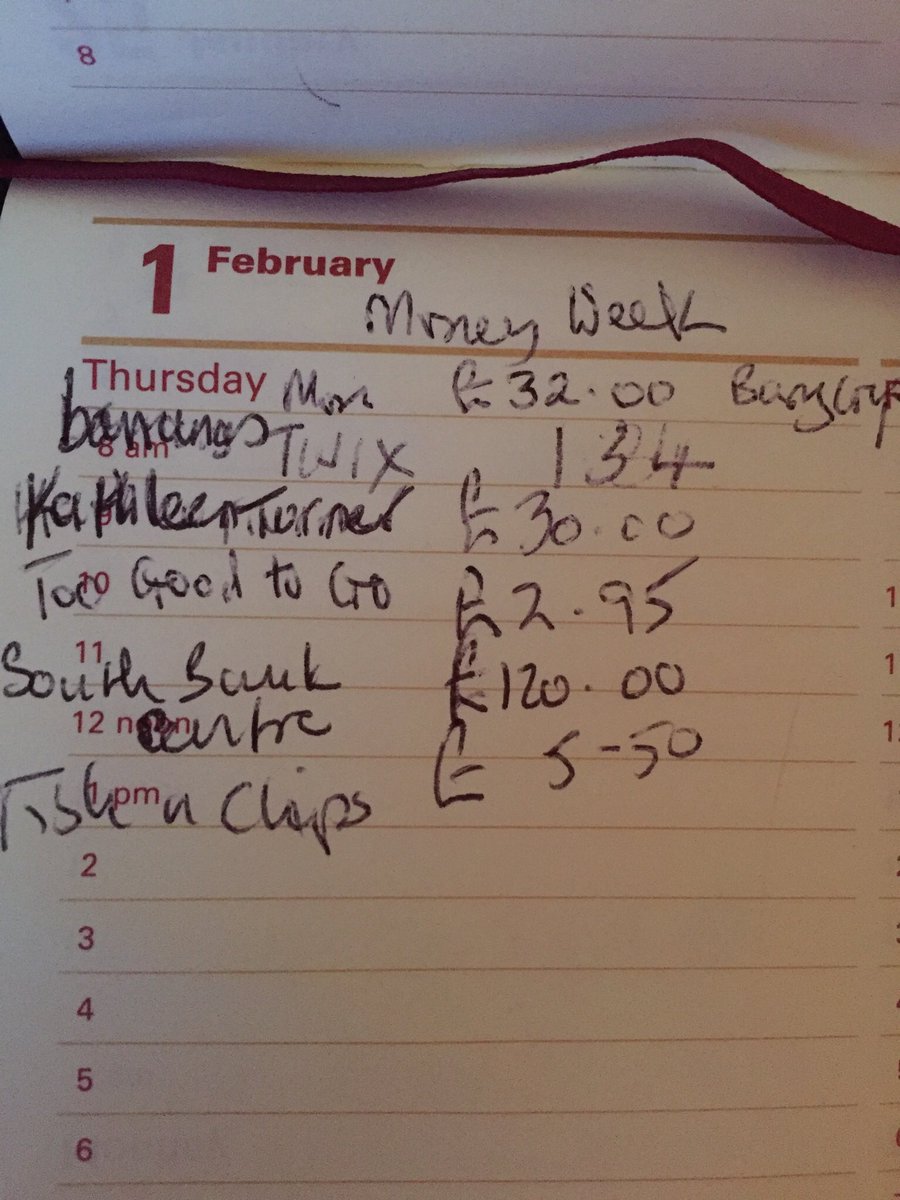 8
1 February
Money Week
Thursday Mon £32.00
bananas
8 am TWIX 134
9 Kathleen Turner £30.00
10 Too Good to Go £2.95
11
South Bank £120.00
12 noon Centre
£ 5-50
1 pm Fish n Chips
2
3
4
5
6